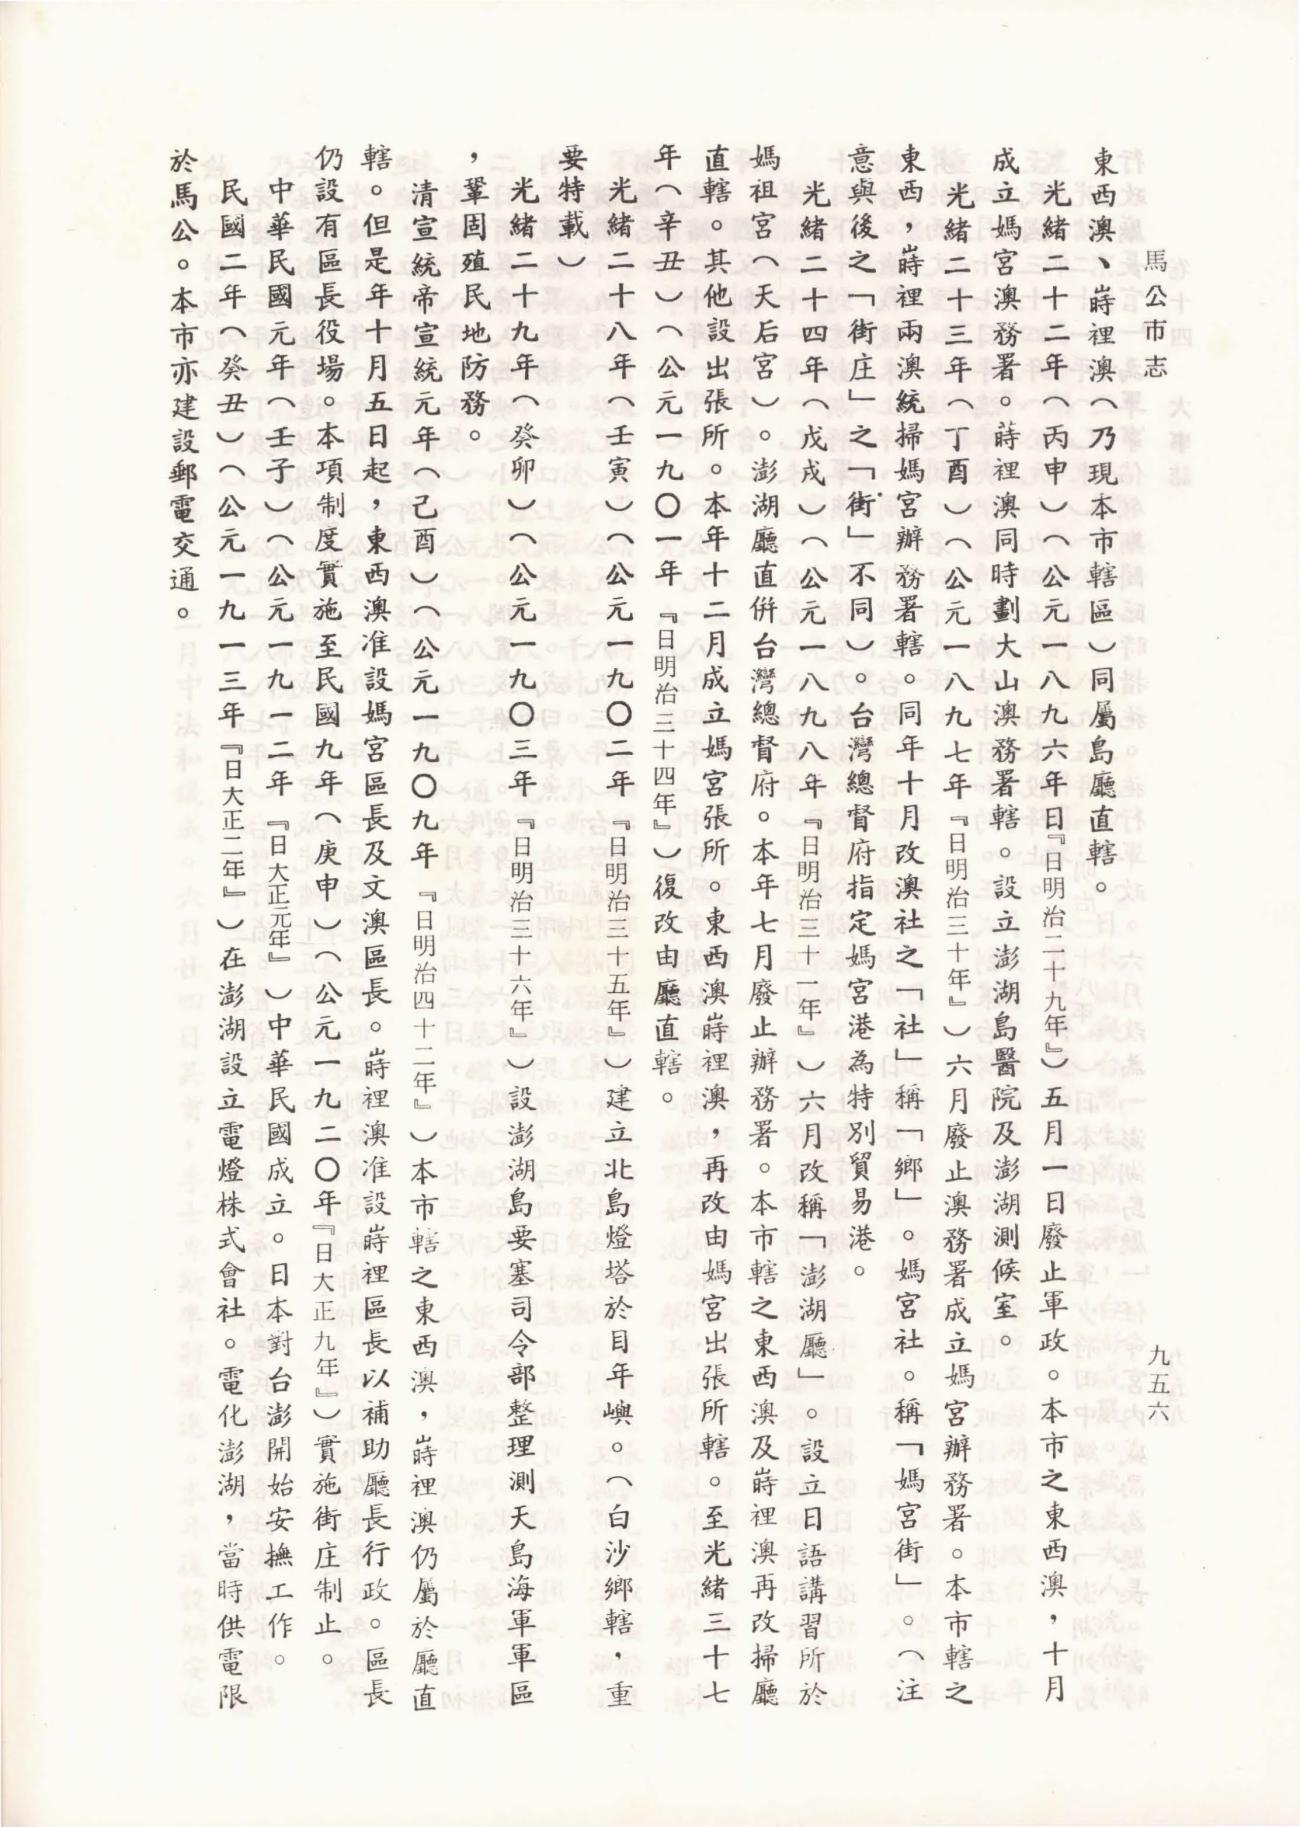 馬公市志
九五六
東西澳、嵵裡澳（乃現本市轄區）同屬島廳直轄。
光緒二十二年（丙申）（公元一八九六年日『日明治二十九年』）五月一日廢止軍政。本市之東西澳，十月
成立媽宮澳務署。蒔裡澳同時劃大山澳務署轄。設立澎湖島醫院及澎湖測候室。
光緒二十三年（丁酉）（公元一八九七年『日明治三十年』）六月廢止澳務署成立媽宮辦務署。本市轄之
東西，嵵裡兩澳統掃媽宮辦務署轄。同年十月改澳社之「社」稱「鄉」。媽宮社。稱「媽宮街」。（注
意與後之「街庄」之「街」不同）。台灣總督府指定媽宮港為特別貿易港。
光緒二十四年（戊戌）（公元一八九八年『日明治三十一年』）六月改稱「澎湖廳」。設立日語講習所於
媽祖宮（天后宮）。澎湖廳直併台灣總督府。本年七月廢止辦務署。本市轄之東西澳及嵵裡澳再改掃廳
直轄。其他設出張所。本年十二月成立媽宮張所。東西澳嵵裡澳，再改由媽宮出張所轄。至光緒三十七
年（辛丑）（公元一九〇一年『日明治三十四年』）復改由廳直轄。
光緒二十八年（壬寅）（公元一九〇二年『日明治三十五年』）建立北島燈塔於目年嶼。（白沙鄉轄，重
要特載）
光緒二十九年（癸卯）（公元一九〇三年『日明治三十六年』）設澎湖島要塞司令部整理測天島海軍軍區
，鞏固殖民地防務。
清宣統帝宣統元年（己酉）（公元一九〇九年『日明治四十二年』）本市轄之東西澳，嵵裡澳仍屬於廳直
轄。但是年十月五日起，東西澳准設媽宮區長及文澳區長。嵵裡澳准設嵵裡區長以補助廳長行政。區長
仍設有區長役場。本項制度實施至民國九年（庚申）（公元一九二〇年『日大正九年』）實施街庄制止。
中華民國元年（壬子）（公元一九一二年『日大正元年』）中華民國成立。日本對台澎開始安撫工作。
民國二年（癸丑）（公元一九一三年『日大正二年』）在澎湖設立電燈株式會社。電化澎湖，當時供電限
於馬公。本市亦建設郵電交通。